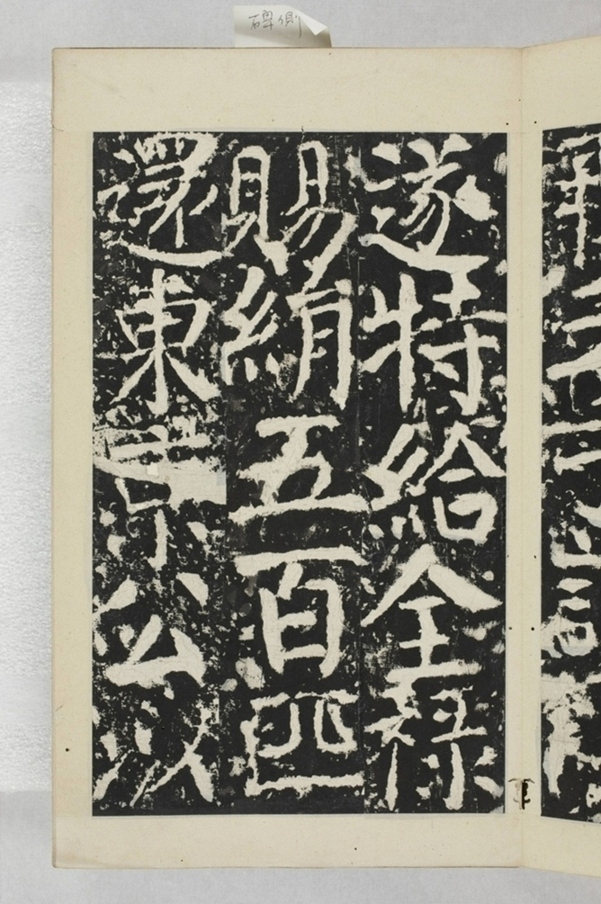 碑側
遂特給全祿
賜絹五百匹
還東京公以